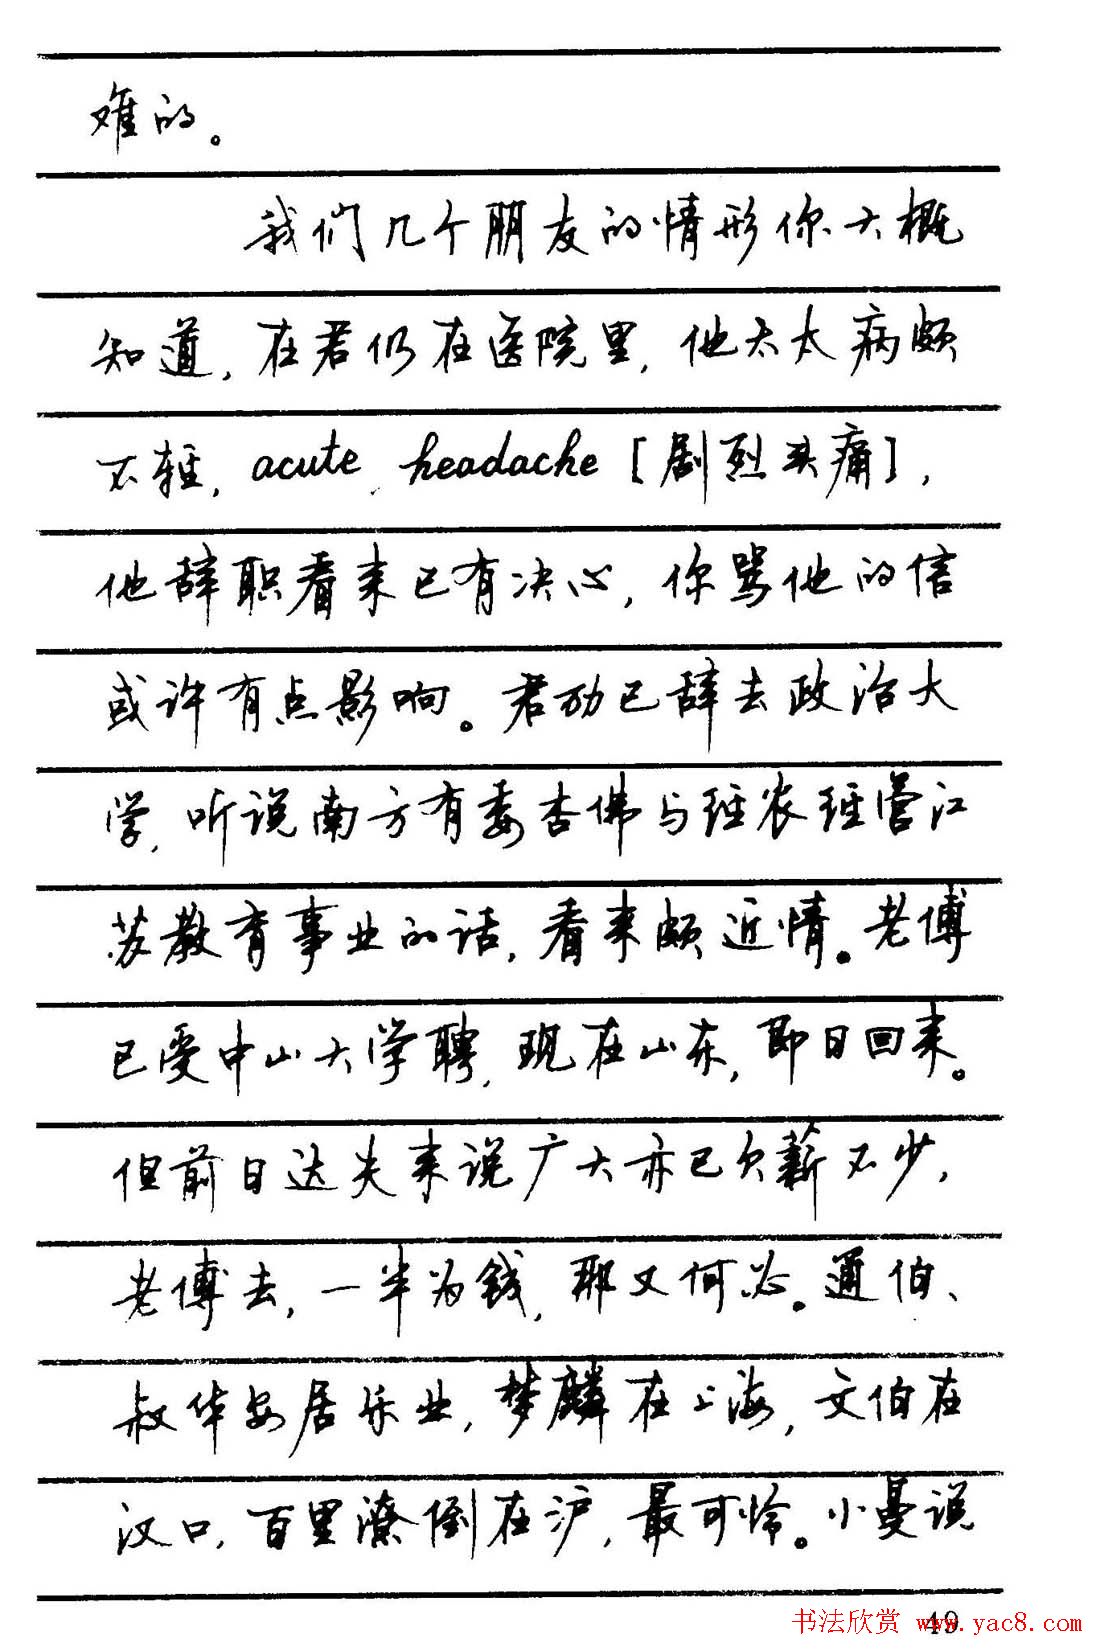 难的。
我们几个朋友的情形你大概
知道，在君仍在医院里，他太太病颇
不轻，acute headache［剧烈头痛］，
他辞职看来已有决心，你骂他的信
或许有点影响。君劢已辞去政治大
学，听说南方有委杏佛与经农经营江
苏教育事业的话，看来颇近情。老傅
已受中山大学聘，现在山东，即日回来。
但前日达夫来说广大亦已欠薪不少，
老傅去，一半为钱，那又何必。通伯、
叔华安居乐业，梦麟在上海，文伯在
汉口，百里潦倒在沪，最可怜。小曼说
49
书法欣赏 www.yac8.com